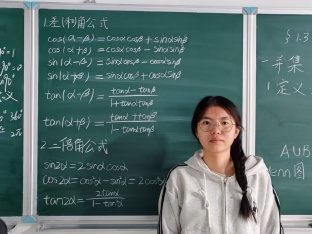 1.差(和)角公式
cos(α-β)=cosαcosβ+sinαsinβ
cos(α+β)=cosαcosβ-sinαsinβ
sin(α-β)=sinαcosβ-cosαsinβ
sin(α+β)=sinαcosβ+cosαsinβ
tan(α-β)=\frac{tanα-tanβ}{1+tanαtanβ}
tan(α+β)=\frac{tanα+tanβ}{1-tanαtanβ}
2.二倍角公式
sin2α=2sinαcosα
cos2α=cos²α-sin²α=2cos²
tan2α=\frac{2tanα}{1-tan²α}
§1.3
一并集
1定义
AUB
enn图